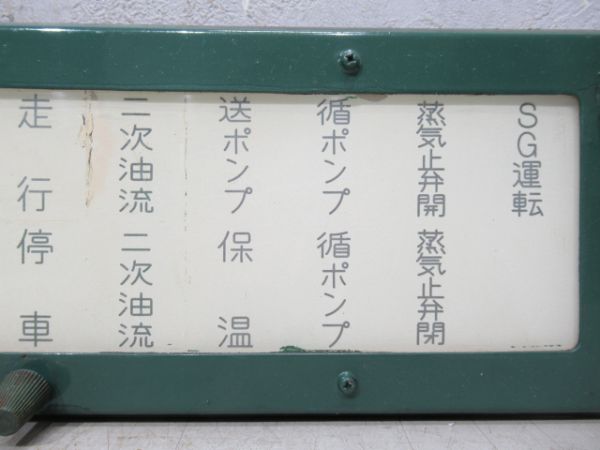 SG運転
蒸気止弁開
蒸気止弁閉
循ポンプ
循ポンプ
送ポンプ
保温
二次油流
二次油流
走行
停車